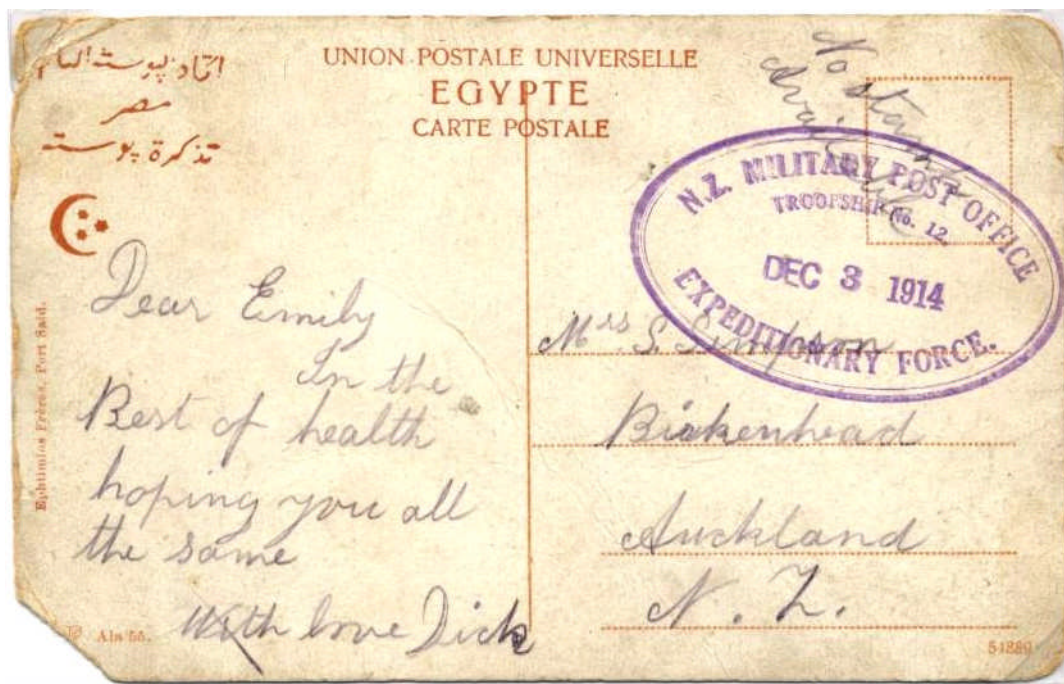 اتحاد پوستة العام
مصر
تذكرة پوستة
UNION POSTALE UNIVERSELLE
EGYPTE
CARTE POSTALE
No stamps
Available
N.Z. MILITARY POST OFFICE
TROOPSHIP No. 12.
DEC 3 1914
EXPEDITIONARY FORCE.
Dear Emily
In the
Best of health
hoping you all
the same
With love Dick
Mrs S. Simpson
Birkenhead
Auckland
N. Z.
Ephtimios Frères, Port Said.